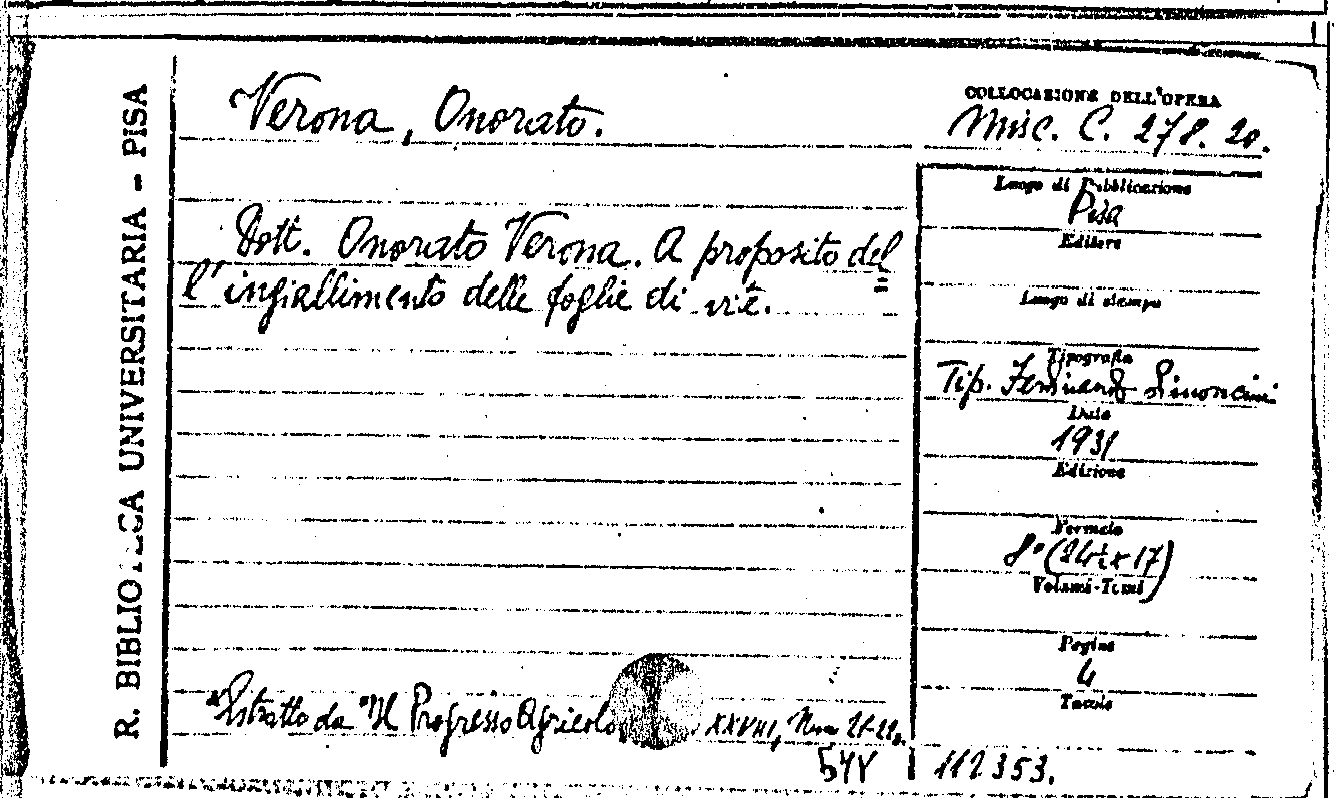 R. BIBLIOTECA UNIVERSITARIA - PISA
Verona, Onorato.
Dott. Onorato Verona. A proposito del
l'ingiallimento delle foglie di vite.
Estratto da "Il Progresso Agricolo XXVIII, Num 21-22.
544
COLLOCAZIONE DELL'OPERA
Misc. C. 278. 20.
Luogo di Pubblicazione
Pisa
Editore
Luogo di stampa
Tipografia
Tip. Ferdinando Simoncini
Data
1931
Edizione
Formato
8° (24½ x 17)
Volumi-Tomi
Pagine
4
Tavole
112353.